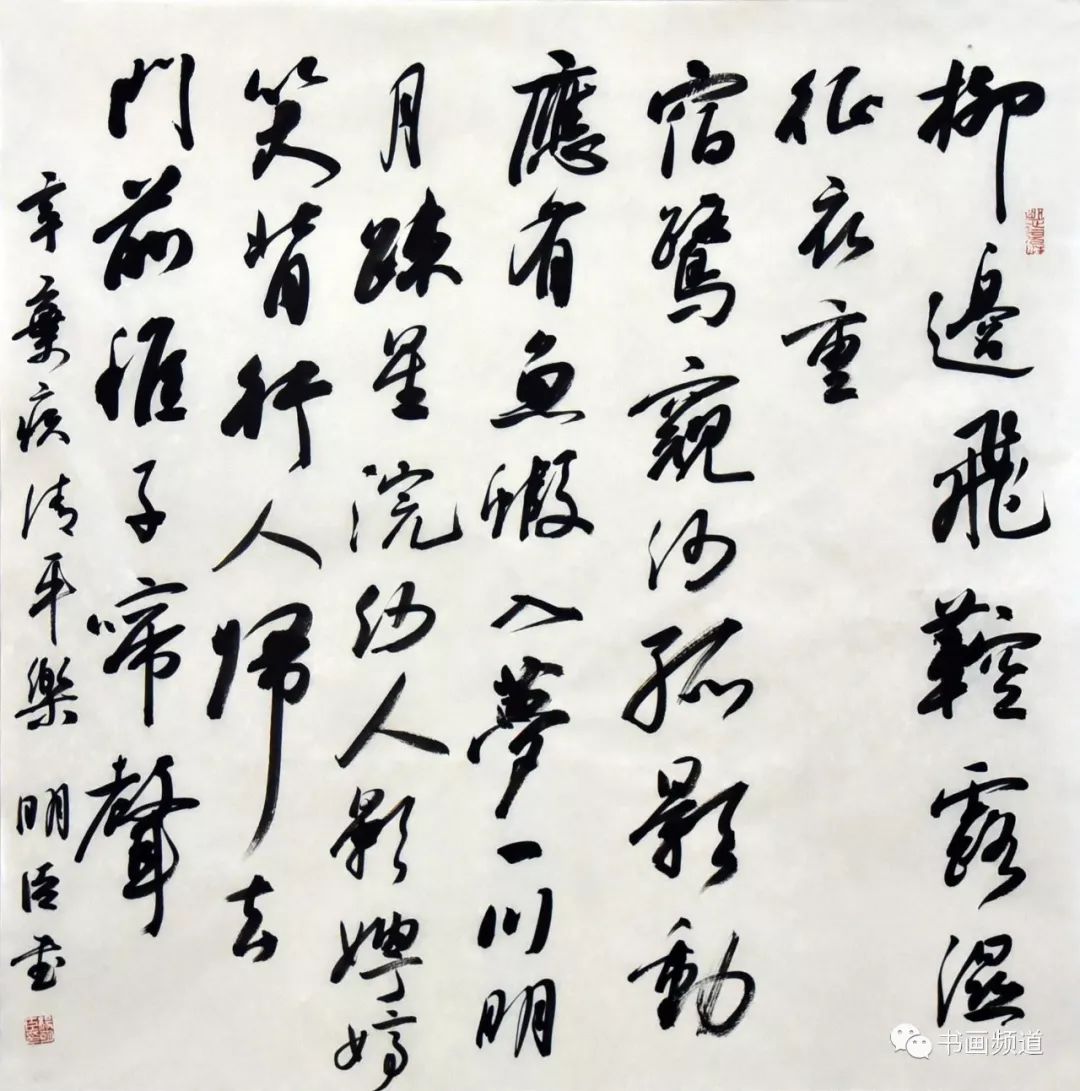 柳邊飛鞚露濕
征衣重
宿鷺窺沙孤影動
應有魚蝦入夢一川明
月踈星浣紗人影娉婷
笑背行人歸去
門前稚子啼聲
辛棄疾清平樂 明臣書
书画频道